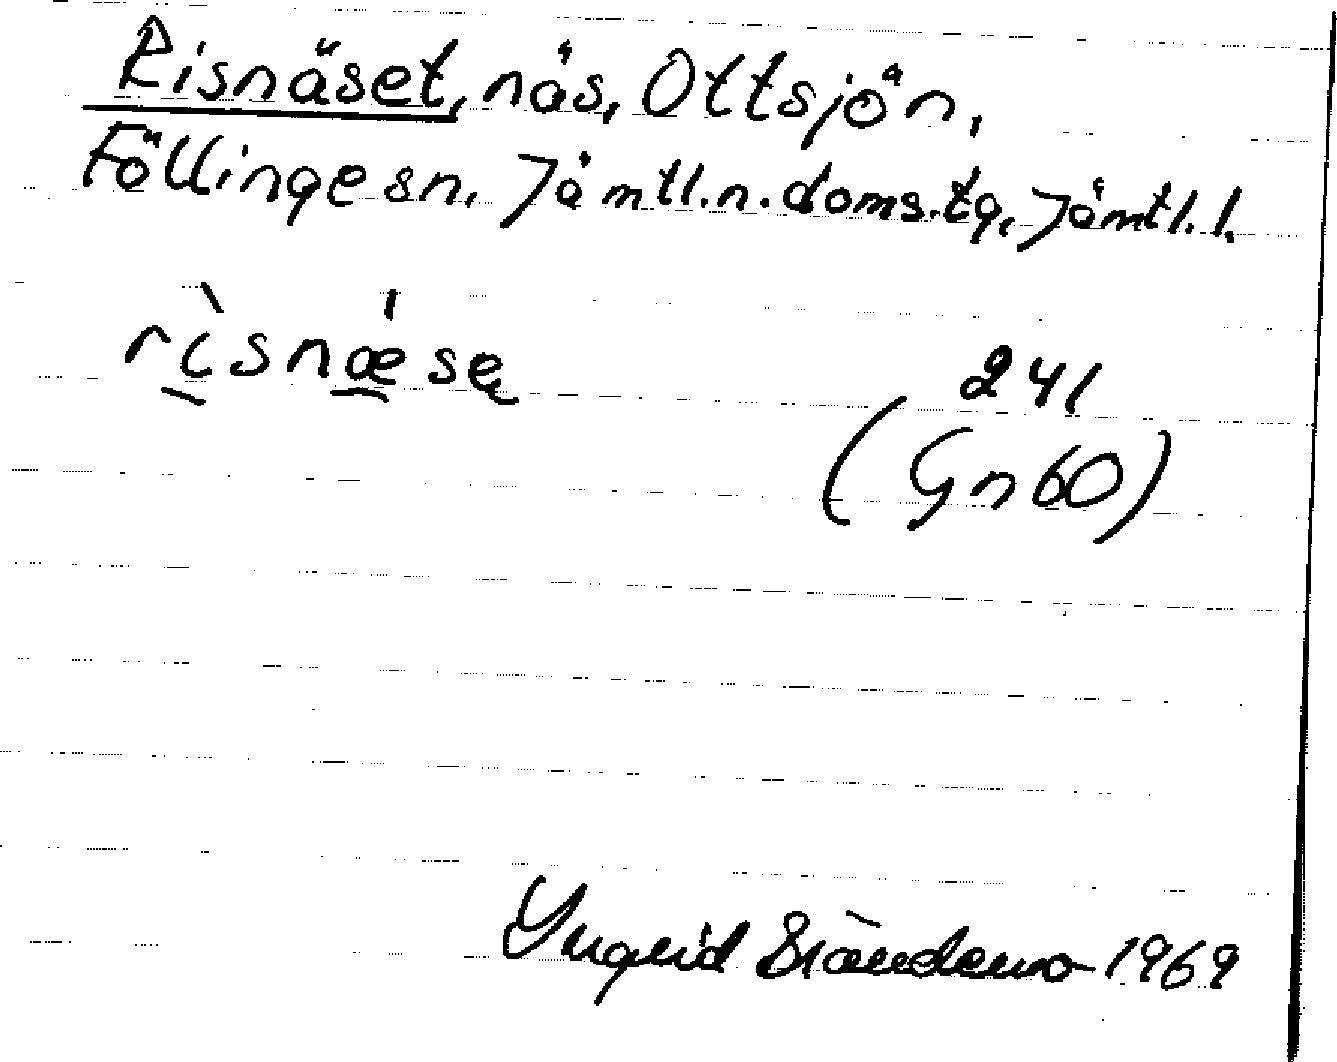 Risnäset, näs, Ottsjön,
Föllinge sn. Jämtl.n.doms.tg, Jämtl.l.
rìsnǽse
241
(Gn60)
Ingrid Brändemo 1969